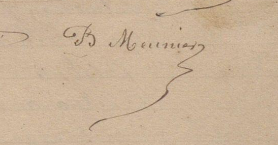 B Meunier